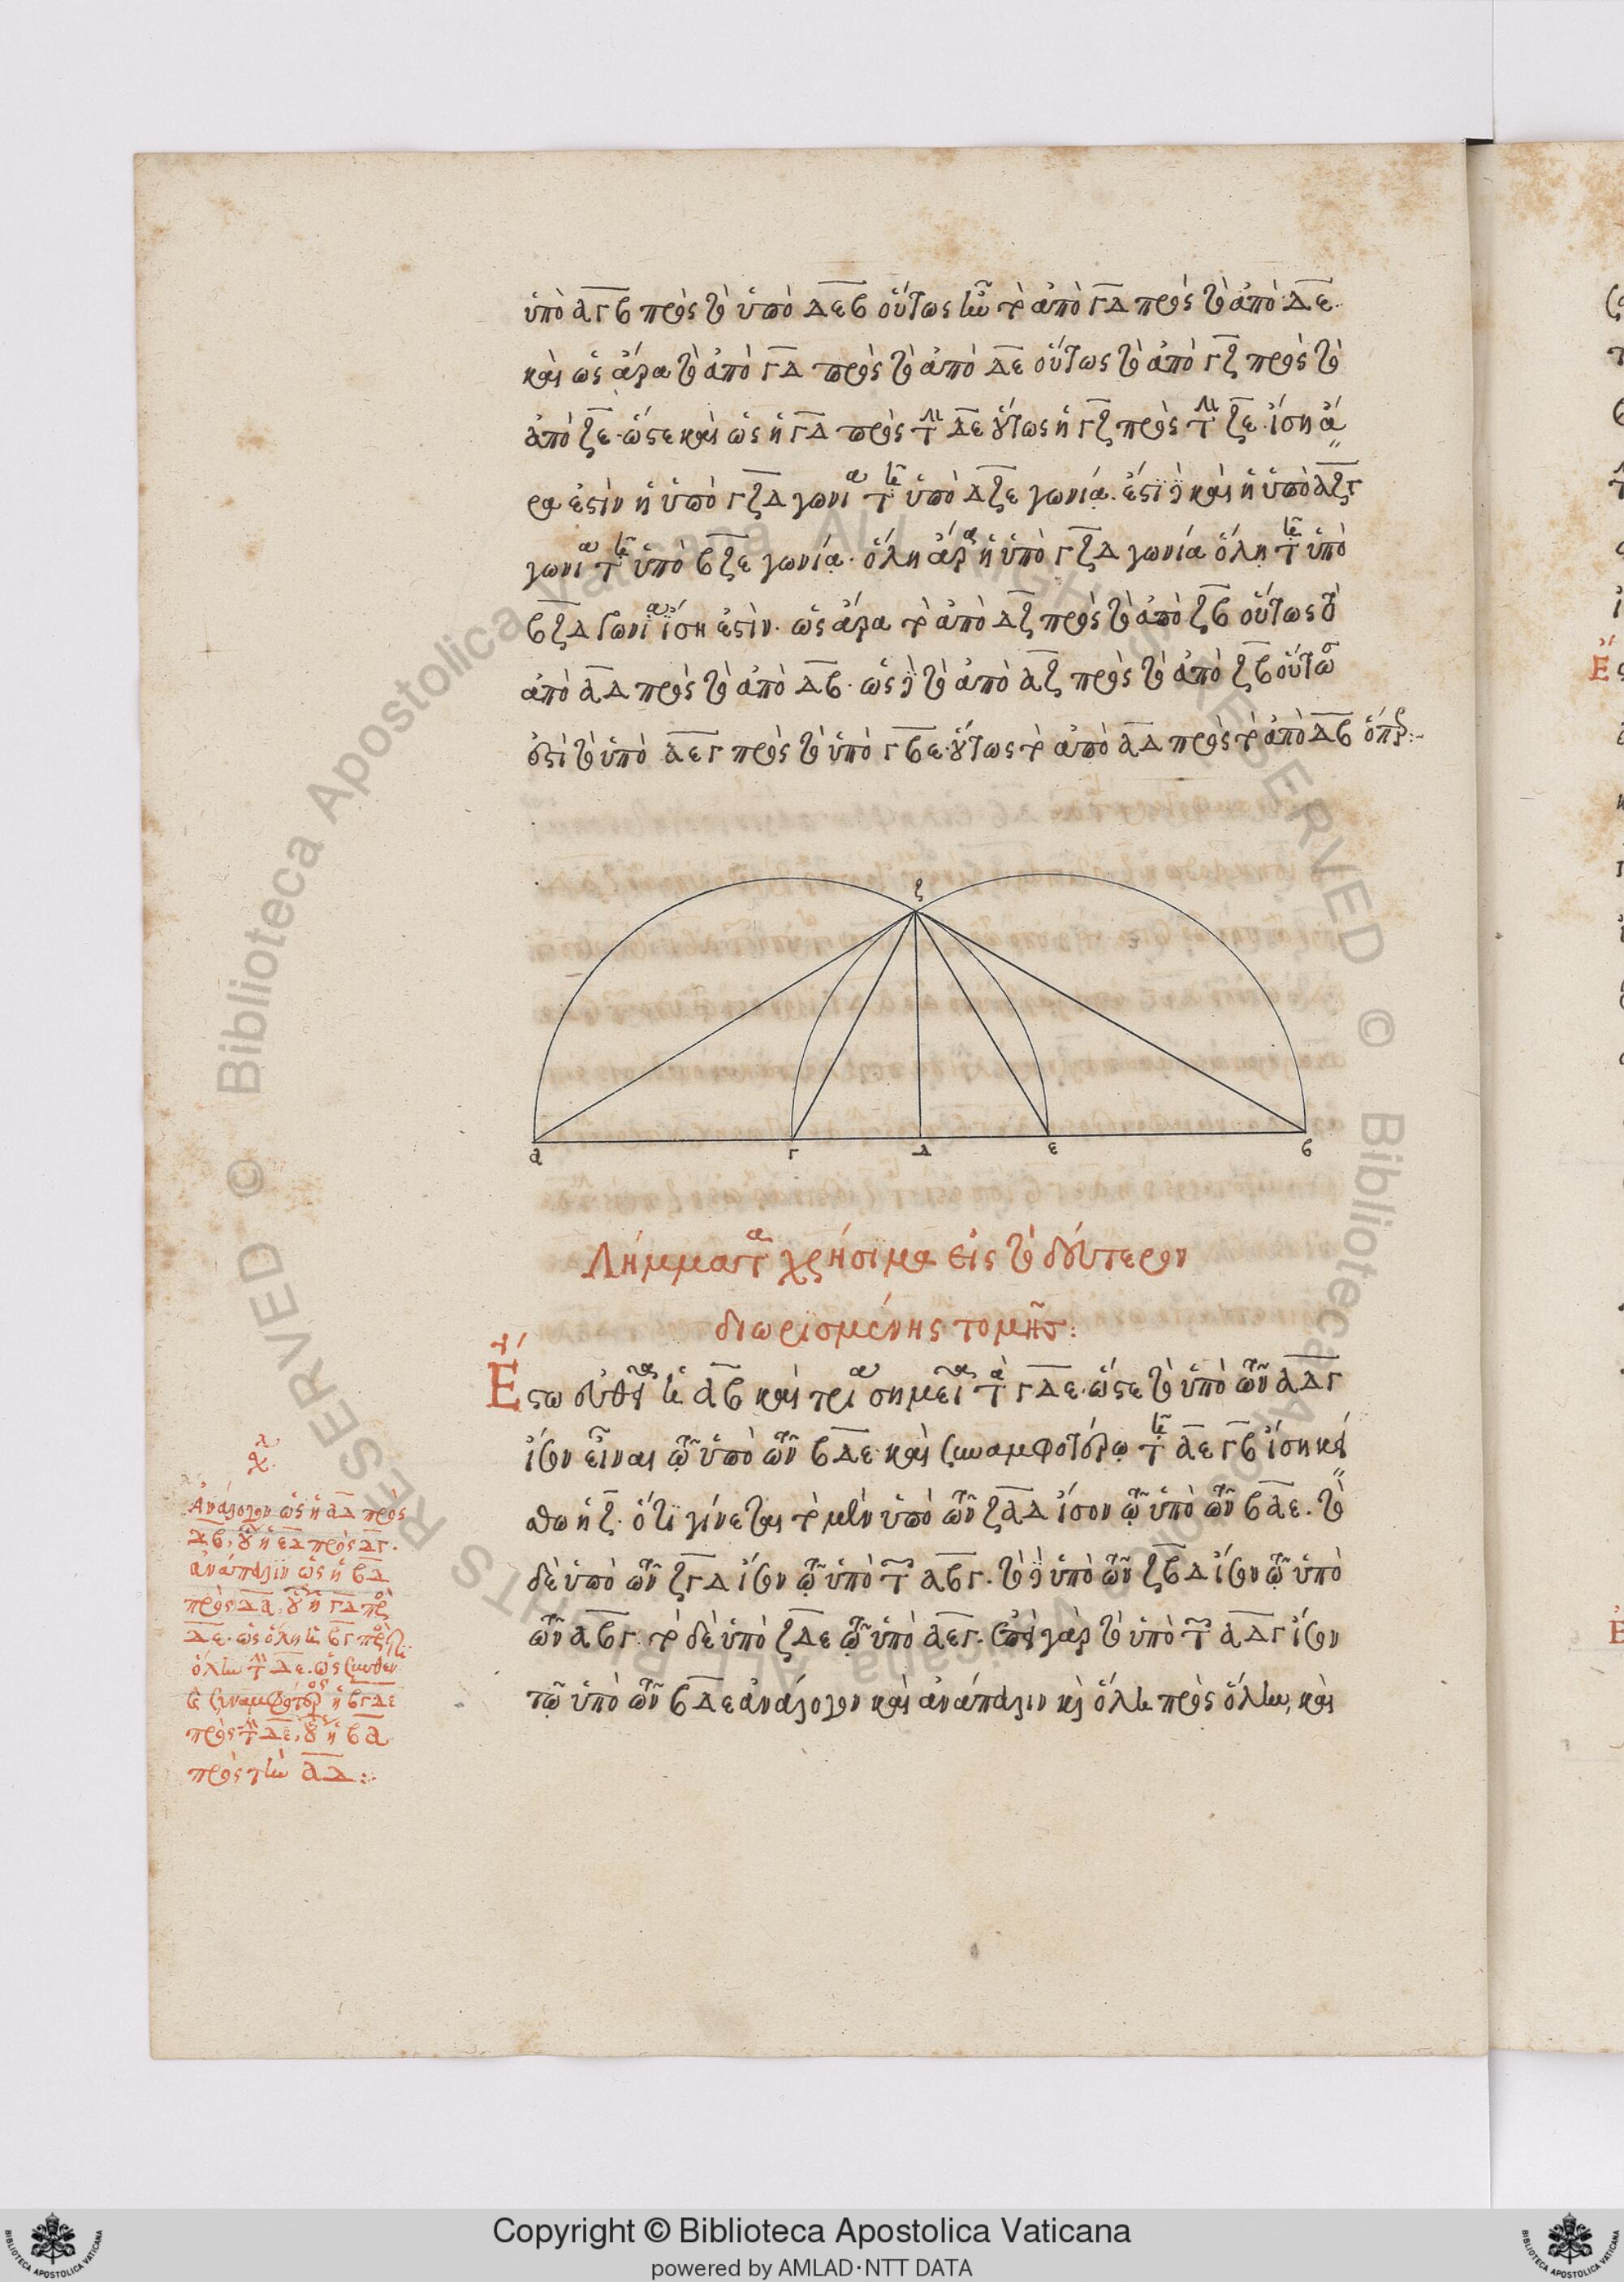 ὑπὸ αγβ πρὸς τὸ ὑπὸ δεβ οὕτως ἦν τὸ ἀπὸ γδ πρὸς τὸ ἀπὸ δε.
καὶ ὡς ἄρα τὸ ἀπὸ γδ πρὸς τὸ ἀπὸ δε οὕτως τὸ ἀπὸ γζ πρὸς τὸ
ἀπὸ ζε. ὥστε καὶ ὡς ἡ γδ πρὸς τὴν δε οὕτως ἡ γζ πρὸς τὴν ζε. ἴση ἄ
ρα ἐστὶν ἡ ὑπὸ γζδ γωνία τῇ ὑπὸ δζε γωνίᾳ. ἔστι δὲ καὶ ἡ ὑπὸ αζγ
γωνία τῇ ὑπὸ βζε γωνίᾳ. ὅλη ἄρα ἡ ὑπὸ γζδ γωνία ὅλῃ τῇ ὑπὸ
βζδ γωνίᾳ ἴση ἐστίν. ὡς ἄρα τὸ ἀπὸ δζ πρὸς τὸ ἀπὸ ζβ οὕτως τὸ
ἀπὸ αδ πρὸς τὸ ἀπὸ δβ. ὡς δὲ τὸ ἀπὸ αζ πρὸς τὸ ἀπὸ ζβ οὕτως
ἐστὶ τὸ ὑπὸ αεγ πρὸς τὸ ὑπὸ γβε. οὕτως τὸ ἀπὸ αδ πρὸς τὸ ἀπὸ δβ ὅπερ:~
ζ
α γ δ ε β
Λήμματα χρήσιμα εἰς τὸ δεύτερον
διωρισμένης τομῆς:
Ἔστω εὐθεῖα ἡ αβ καὶ τρία σημεῖα τὰ γδε. ὥστε τὸ ὑπὸ τῶν αδγ
ἴσον εἶναι τῷ ὑπὸ τῶν βδε. καὶ συναμφοτέρῳ τῇ αε γβ ἴση κεί
σθω ἡ ζ. ὅτι γίνεται τὸ μὲν ὑπὸ τῶν ζαδ ἴσον τῷ ὑπὸ τῶν βαε. τὸ
δὲ ὑπὸ τῶν ζγδ ἴσον τῷ ὑπὸ τῶν αβγ. τὸ δὲ ὑπὸ τῶν ζβδ ἴσον τῷ ὑπὸ
τῶν αβγ. τὸ δὲ ὑπὸ ζδε τῷ ὑπὸ αεγ. ἐπεὶ γὰρ τὸ ὑπὸ τῶν αδγ ἴσον
τῷ ὑπὸ τῶν βδε ἀνάλογον καὶ ἀνάπαλιν καὶ ὅλη πρὸς ὅλην, καὶ
Ἀνάλογον ὡς ἡ αδ πρὸς
δβ, οὕτως ἡ εδ πρὸς δγ.
ἀνάπαλιν ὡς ἡ βδ
πρὸς δα, οὕτως ἡ γδ πρὸς
δε. ὡς ὅλη ἡ βγ πρὸς
ὅλην τὴν δε. ὡς συνθέν
ἡ συναμφότερος ἡ βγδε
πρὸς τὴν δε, οὕτως ἡ βα
πρὸς τὴν αδ:~
© Biblioteca Apostolica Vaticana ALL RIGHTS RESERVED
© Biblioteca Apostolica Vaticana ALL RIGHTS RESERVED
Copyright © Biblioteca Apostolica Vaticana
powered by AMLAD·NTT DATA
BIBLIOTECA APOSTOLICA VATICANA
BIBLIOTECA APOSTOLICA VATICANA